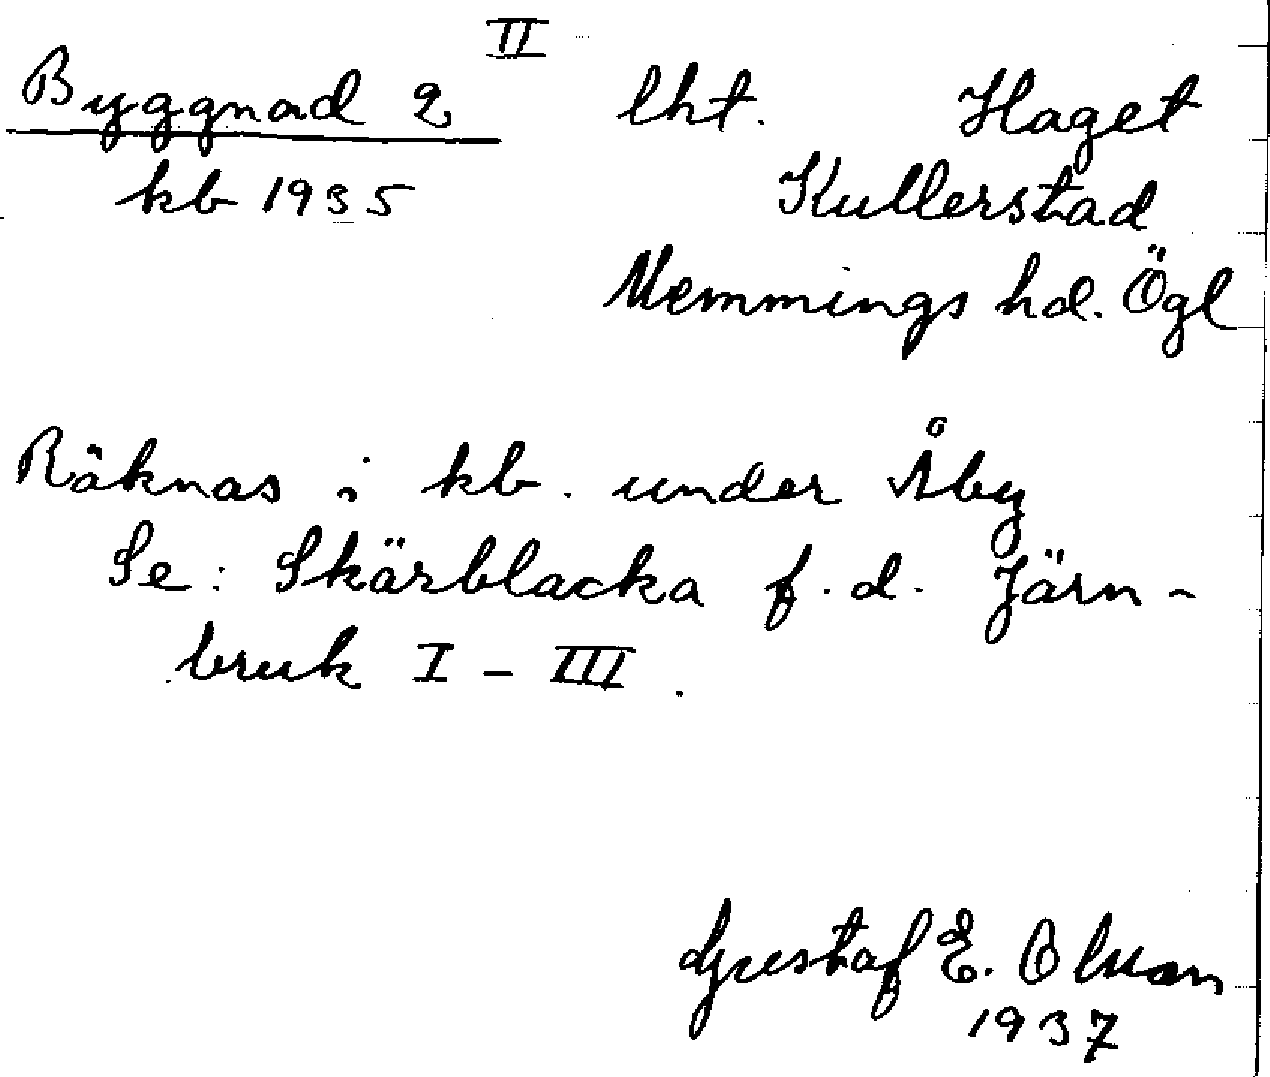 II
Byggnad 2 lht. Haget
kb 1935 Kullerstad
Memmings hd. Ögl
Räknas i kb. under Åby
Se: Skärblacka f.d. Järn-
bruk I - III.
Gustaf E. Olsson
1937